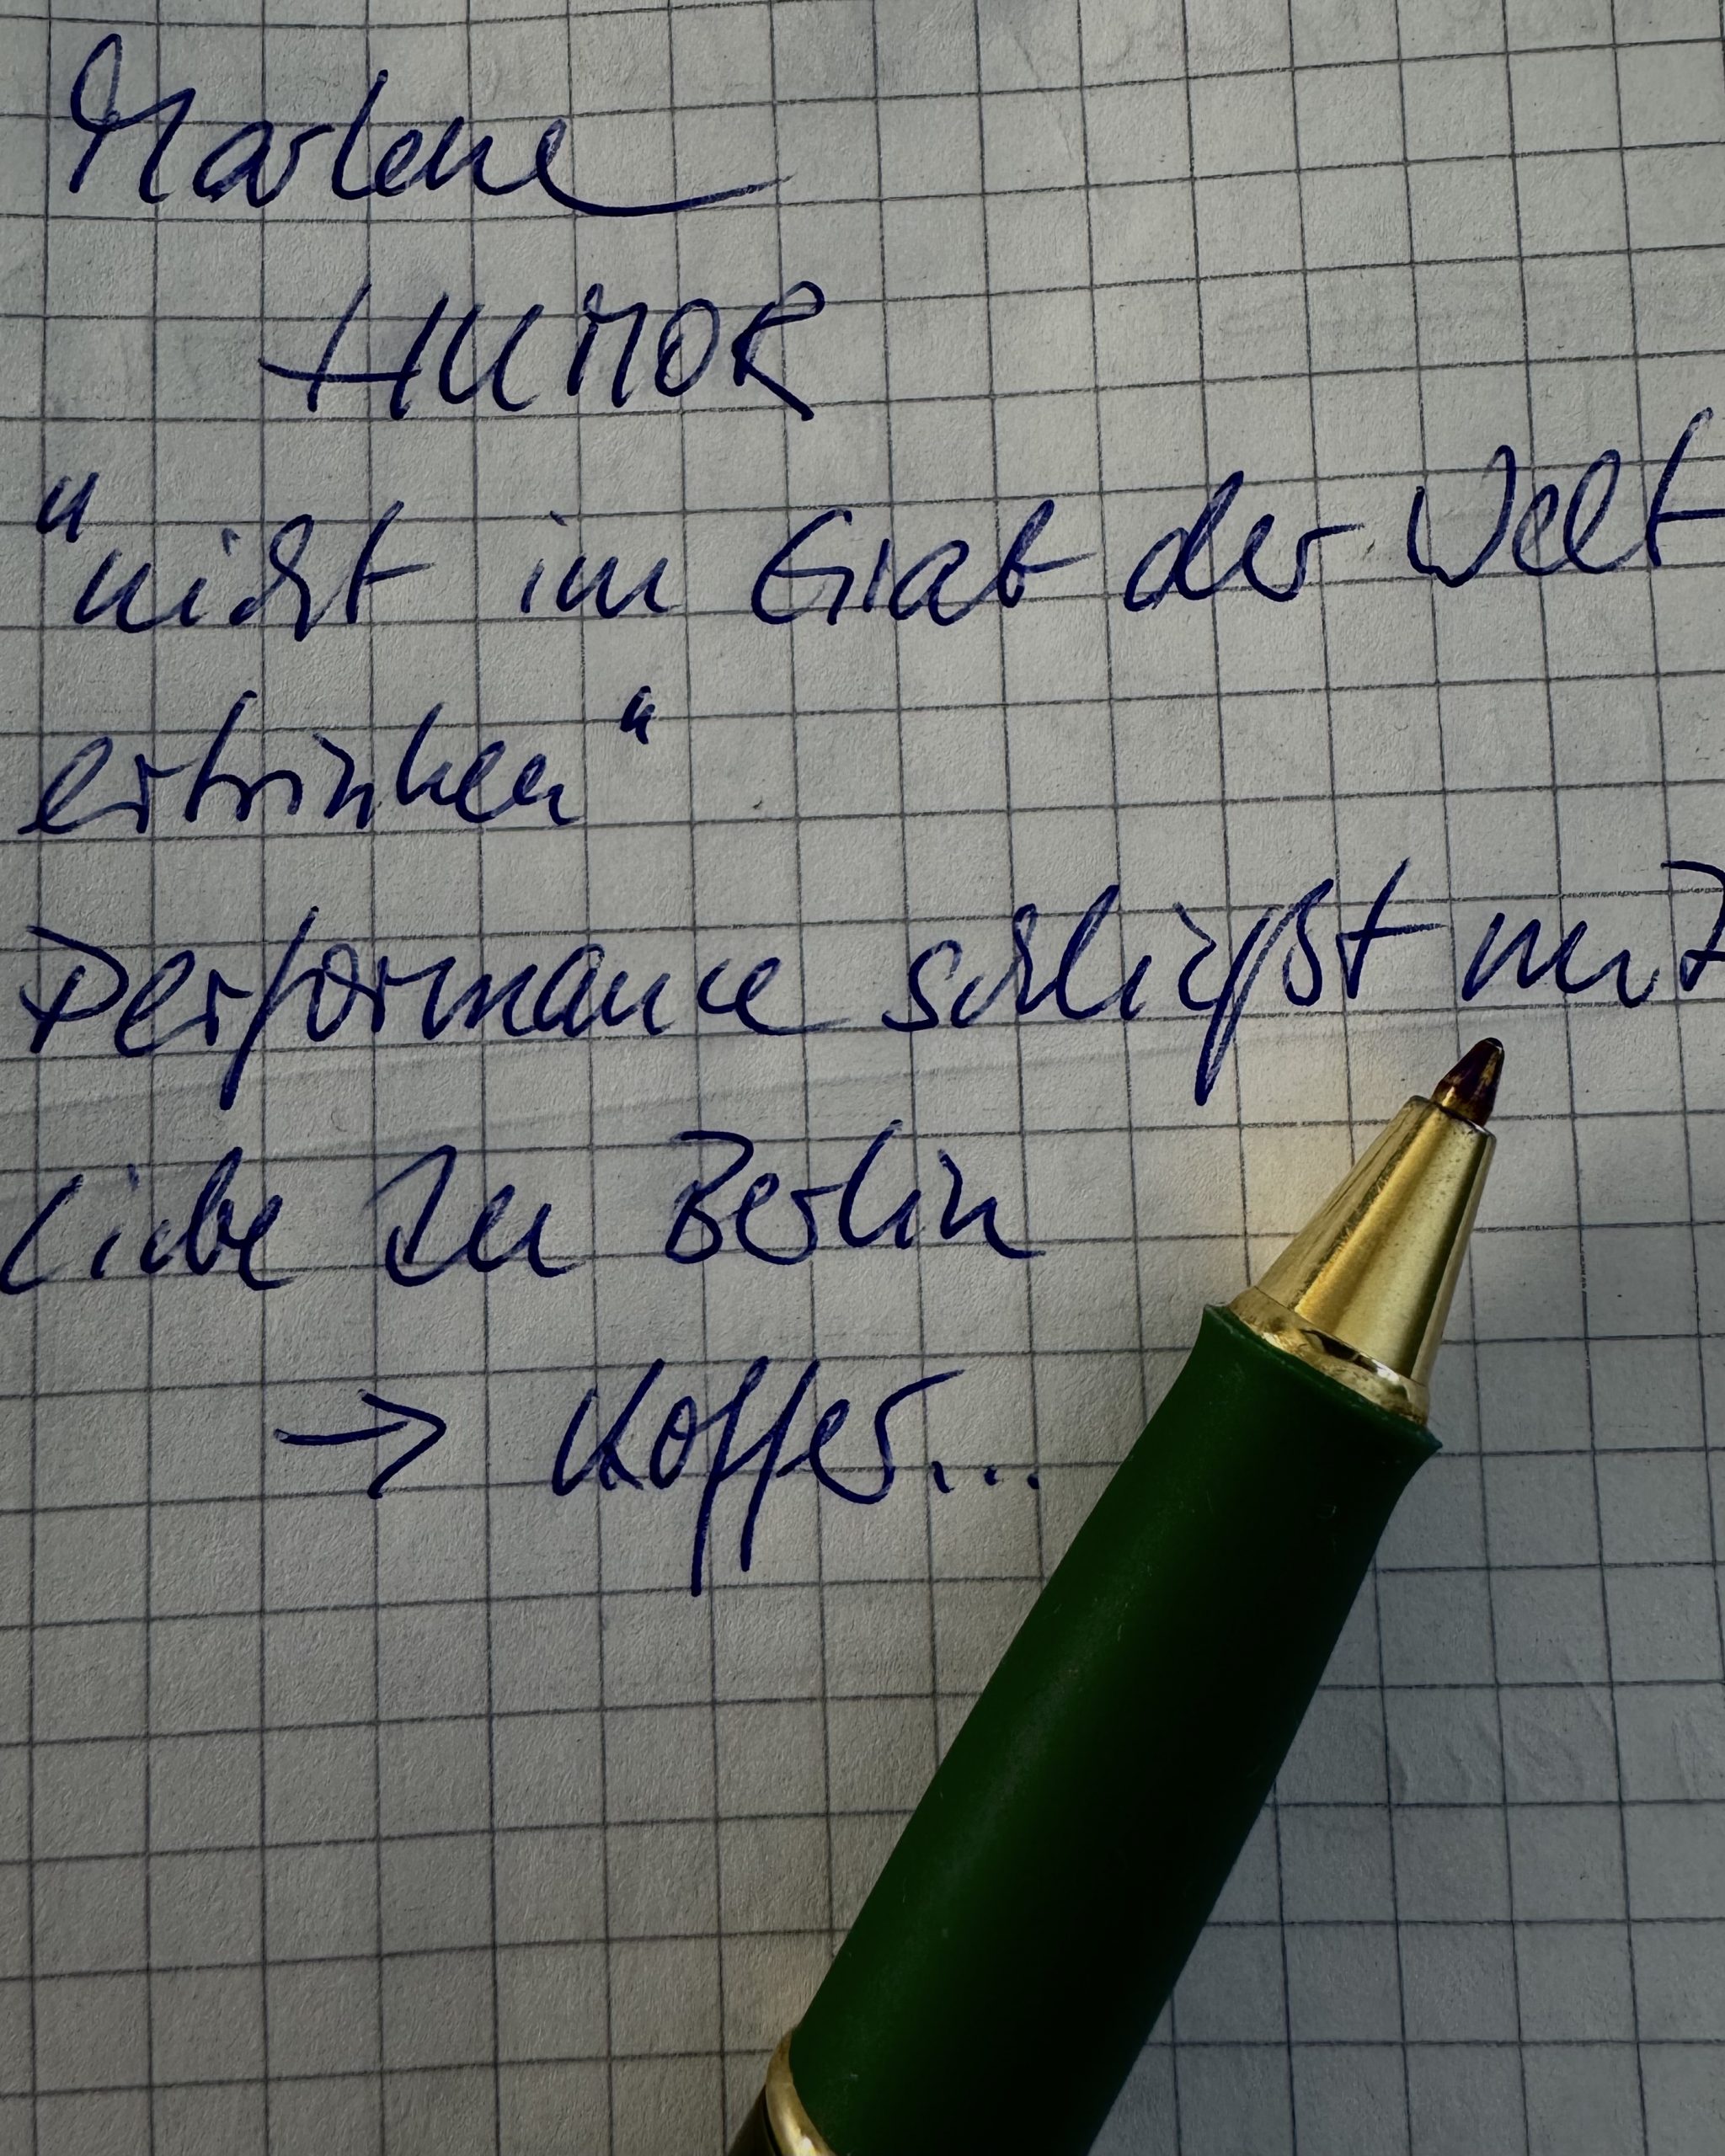 Marlene
HUMOR
"nicht im Grab der Welt
ertrinken"
Performance schließt mit
Liebe zu Berlin
→ Koffer...